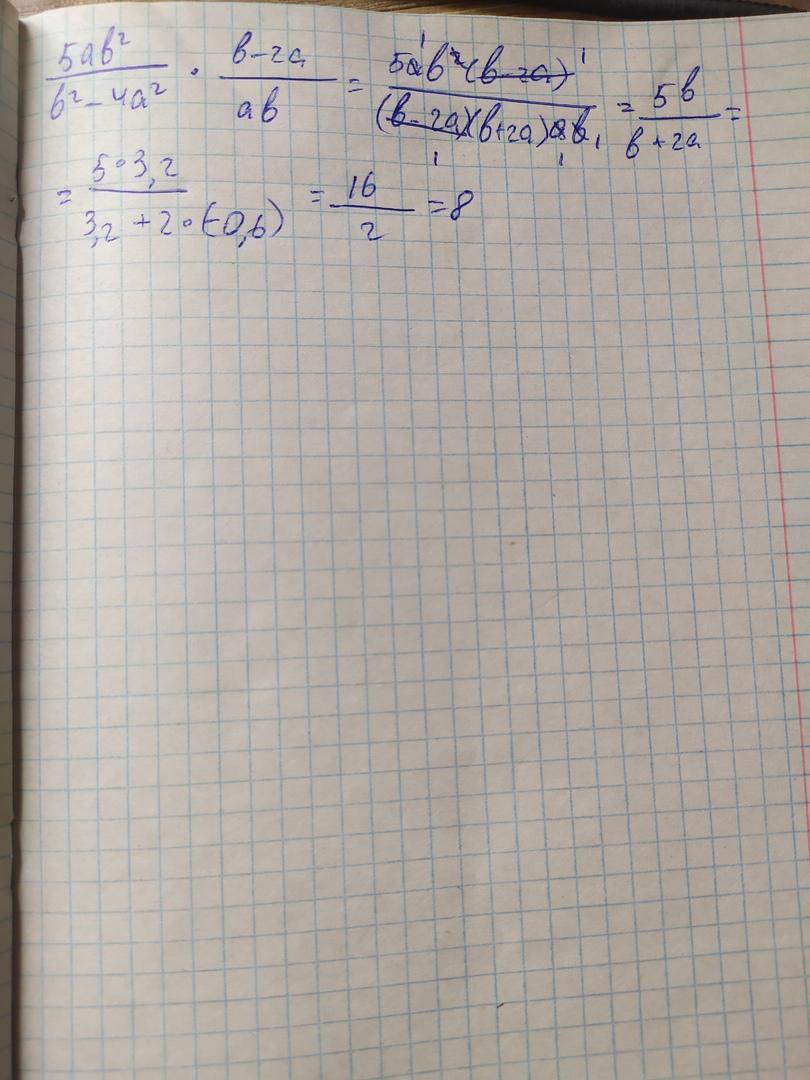 5ab²/(b²-4a²) · (b-2a)/(ab) = 5ab²(b-2a)/((b-2a)(b+2a)ab) = 5b/(b+2a) =
= 5·3,2/(3,2+2·(-0,6)) = 16/2 = 8